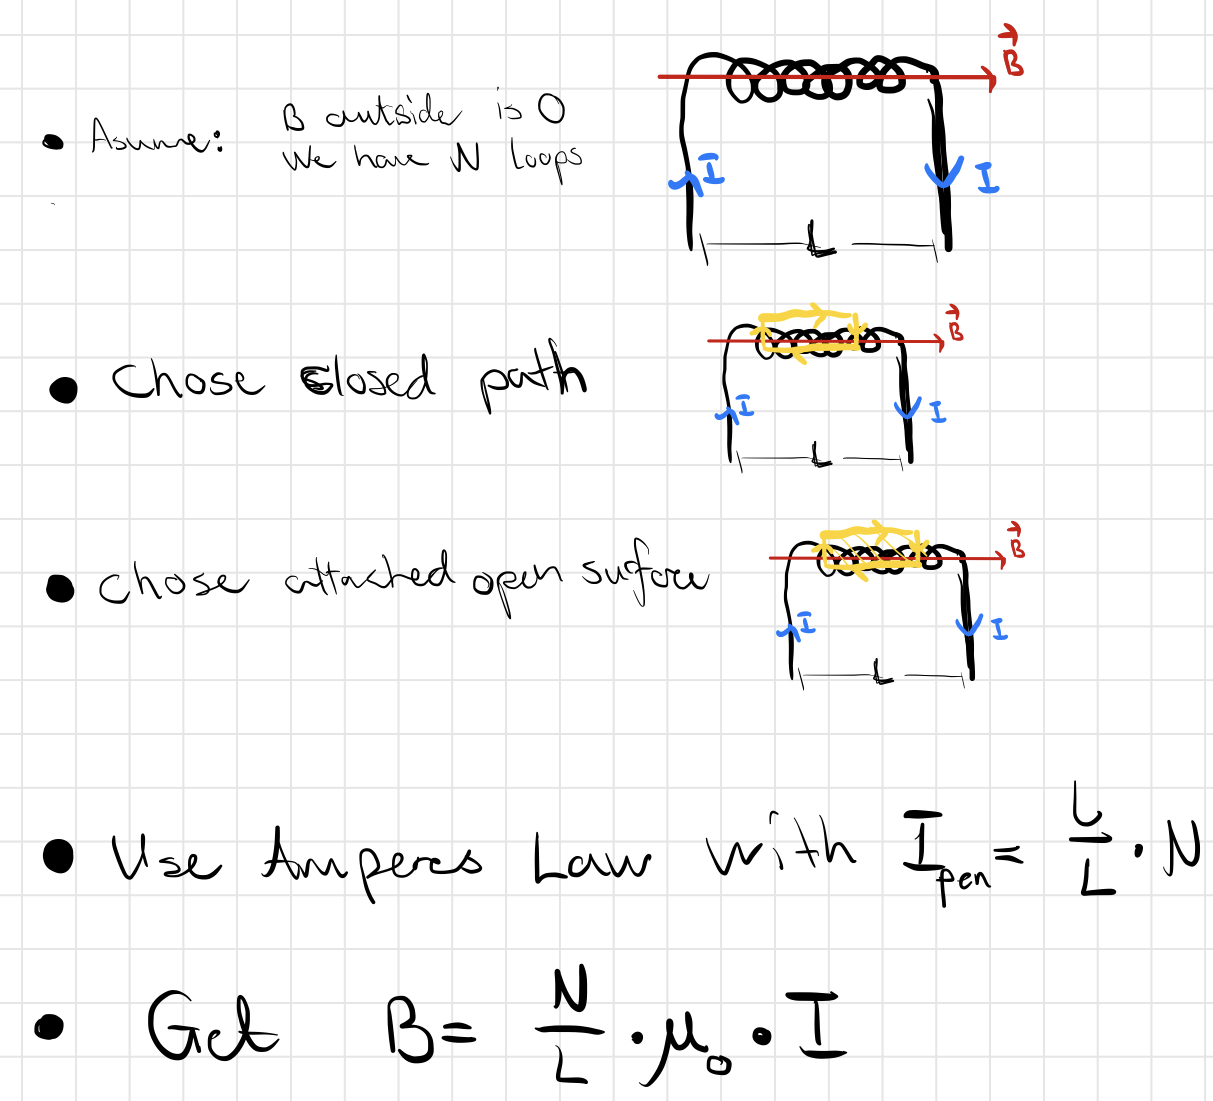 B⃗
• Asume: B outside is 0
We have N Loops
I I
L
B⃗
• Chose closed path
I I
L
B⃗
• Chose attached open surface
I I
L
• Use Amperes Law with I_pen = l/L · N
• Get B = N/L · μ₀ · I